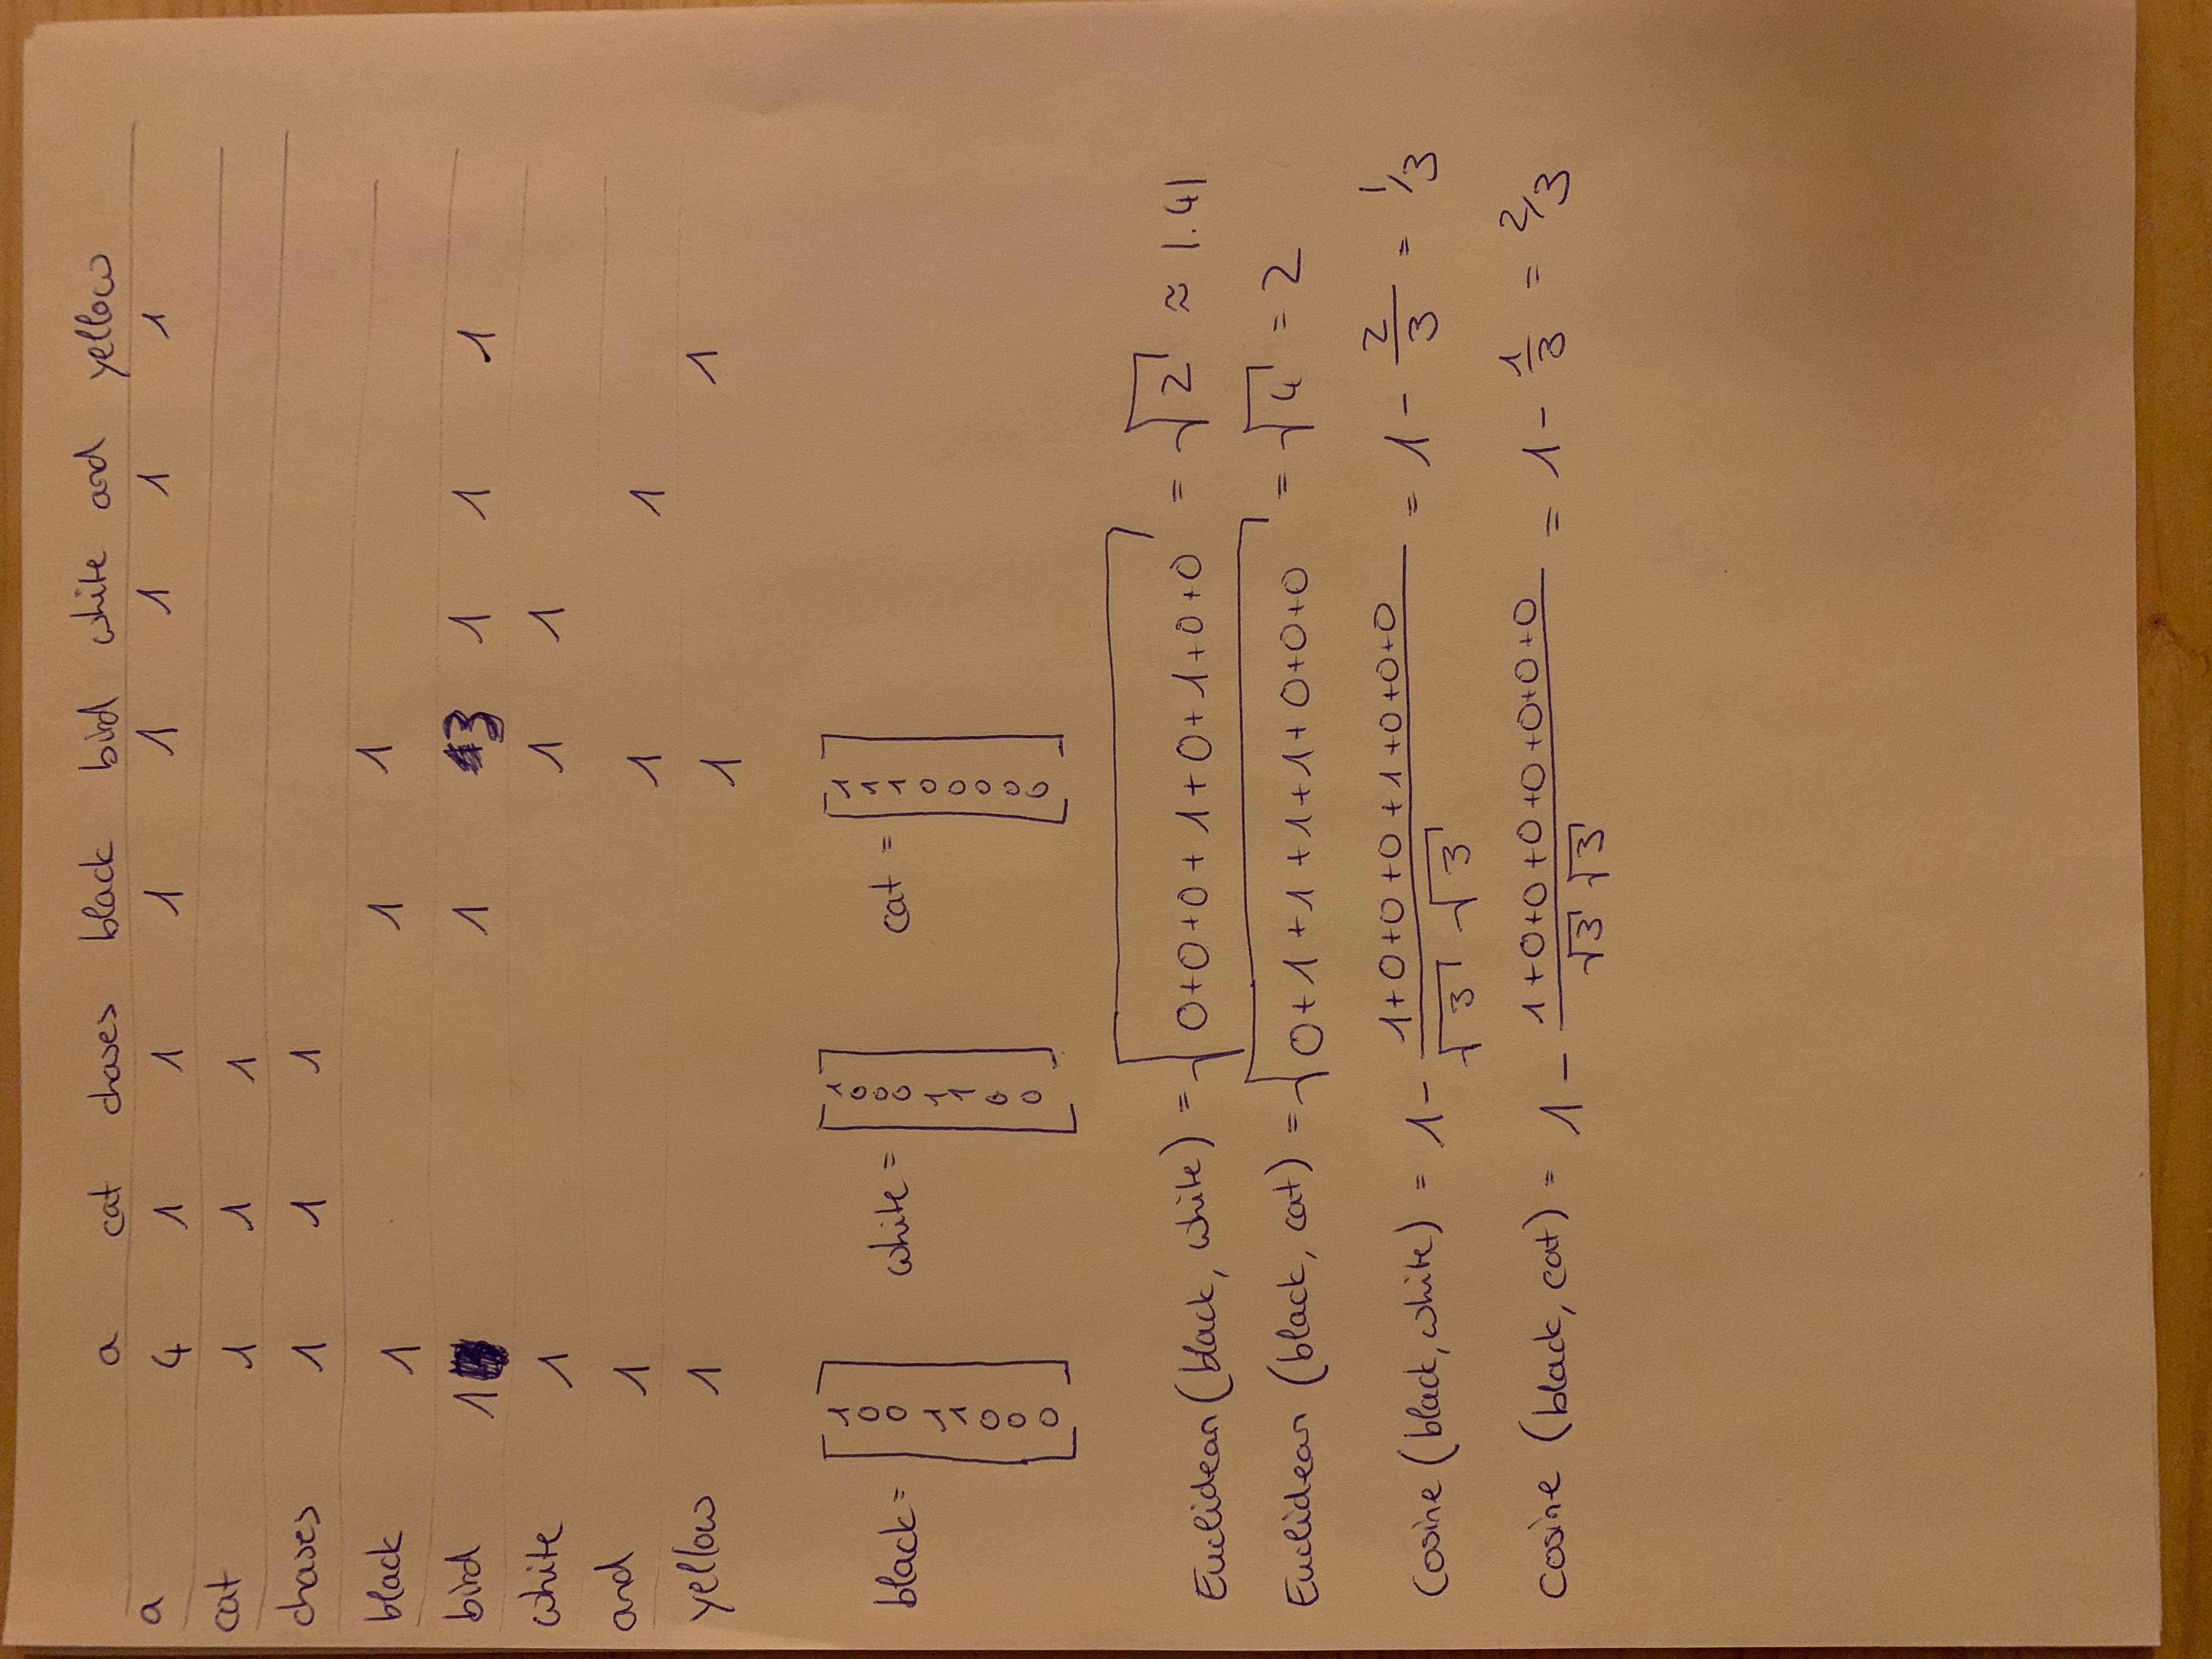 a cat chases black bird white and yellow
a 4 1 1 1 1 1 1 1
cat 1 1 1
chases 1 1 1
black 1 1 1
bird 1 1 3 1 1 1
white 1 1 1
and 1 1 1
yellow 1 1 1
black = [1 0 0 1 1 0 0 0] white = [1 0 0 0 1 1 0 0] cat = [1 1 1 0 0 0 0 0]
Euclidean (black, white) = √(0+0+0+1+0+1+0+0) = √2 ≈ 1.41
Euclidean (black, cat) = √(0+1+1+1+1+0+0+0) = √4 = 2
Cosine (black, white) = 1 - (1+0+0+0+1+0+0+0)/(√3 √3) = 1 - 2/3 = 1/3
Cosine (black, cat) = 1 - (1+0+0+0+0+0+0+0)/(√3 √3) = 1 - 1/3 = 2/3